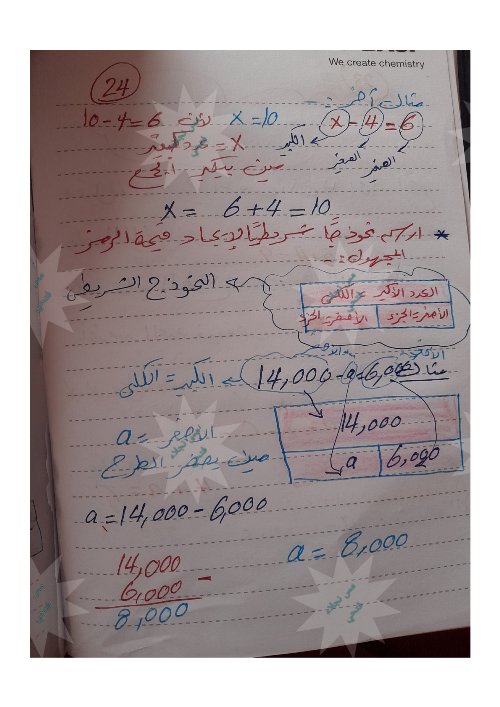 We create chemistry
24
مثال آخر :-
x - 4 = 6 x = 10 لأن 10 - 4 = 6
الكبير الصغير الصغير
x =
مين بكبر الجمع
x = 6 + 4 = 10
* ارسم نموذجًا شريطيًا لإيجاد قيمة الرمز
المجهول :-
النموذج الشريطي
العدد الأكبر = الكلى
الأصغر = الجزء الأصغر = الجزء
مثال 14,000 - a = 6,000
الكبير = الكلى
14,000
a 6,000
الأصغر = a
مين يصغر الطرح
a = 14,000 - 6,000
a = 8,000
14,000
6,000 -
8,000